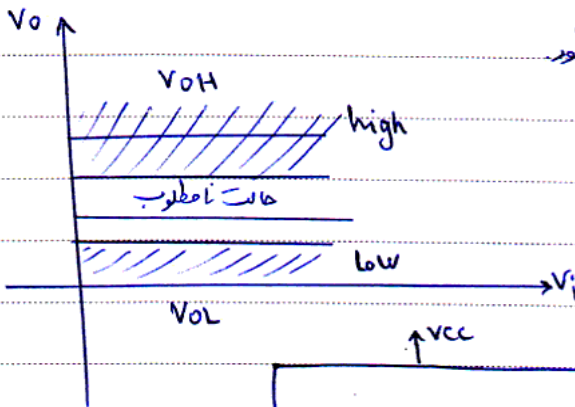 Vo
VOH
high
حالت نامطلوب
Low
Vi
VOL
VCC